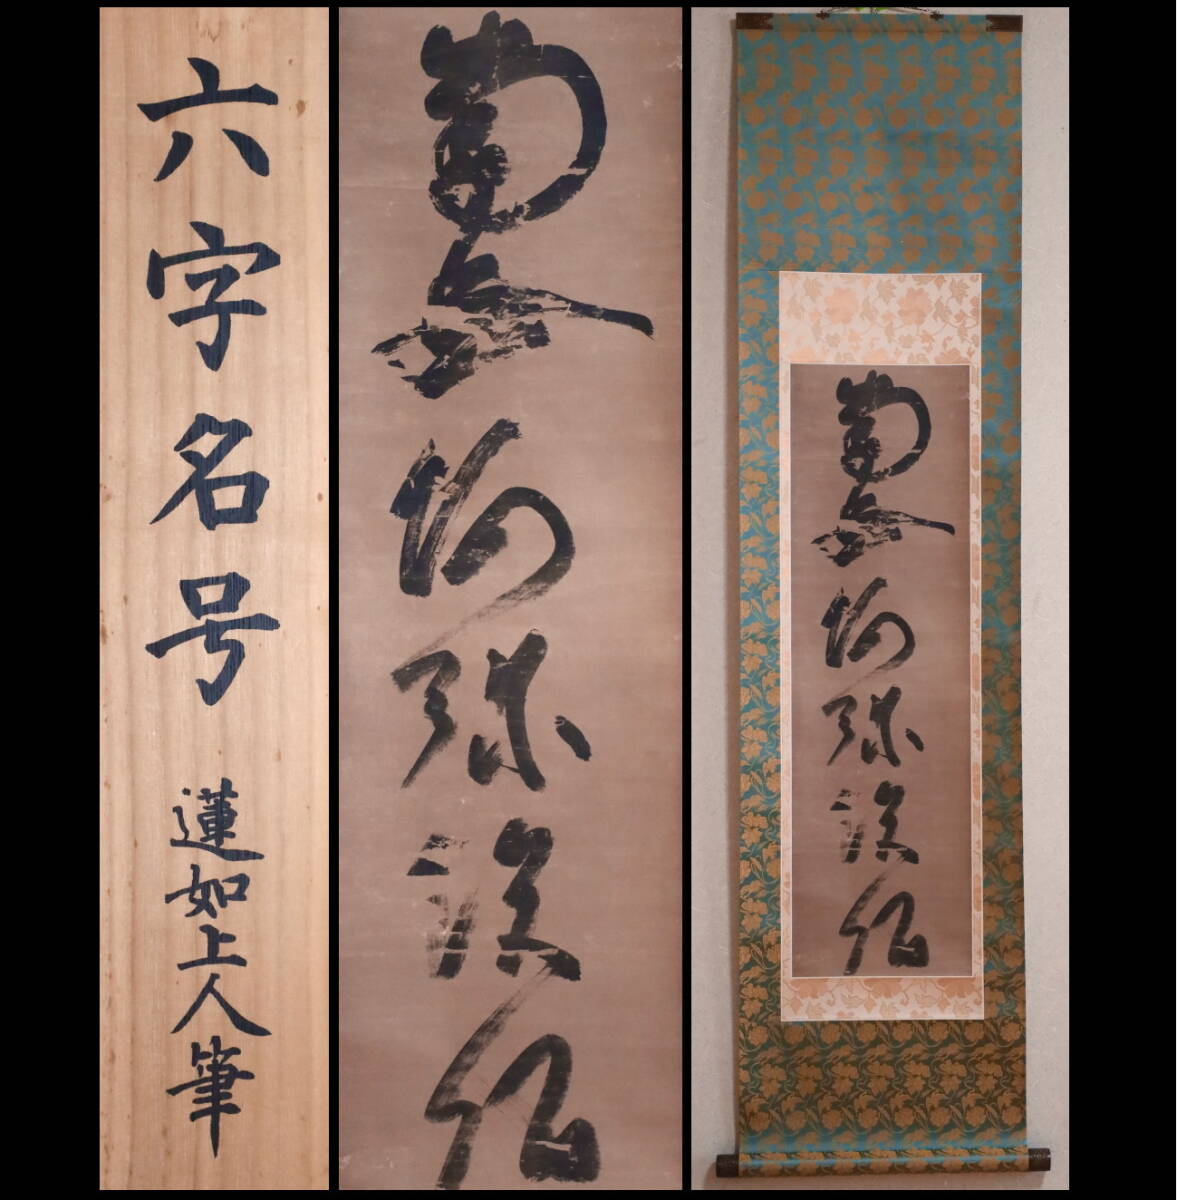 六字名号
蓮如上人筆
南無阿弥陀仏
南無阿弥陀仏